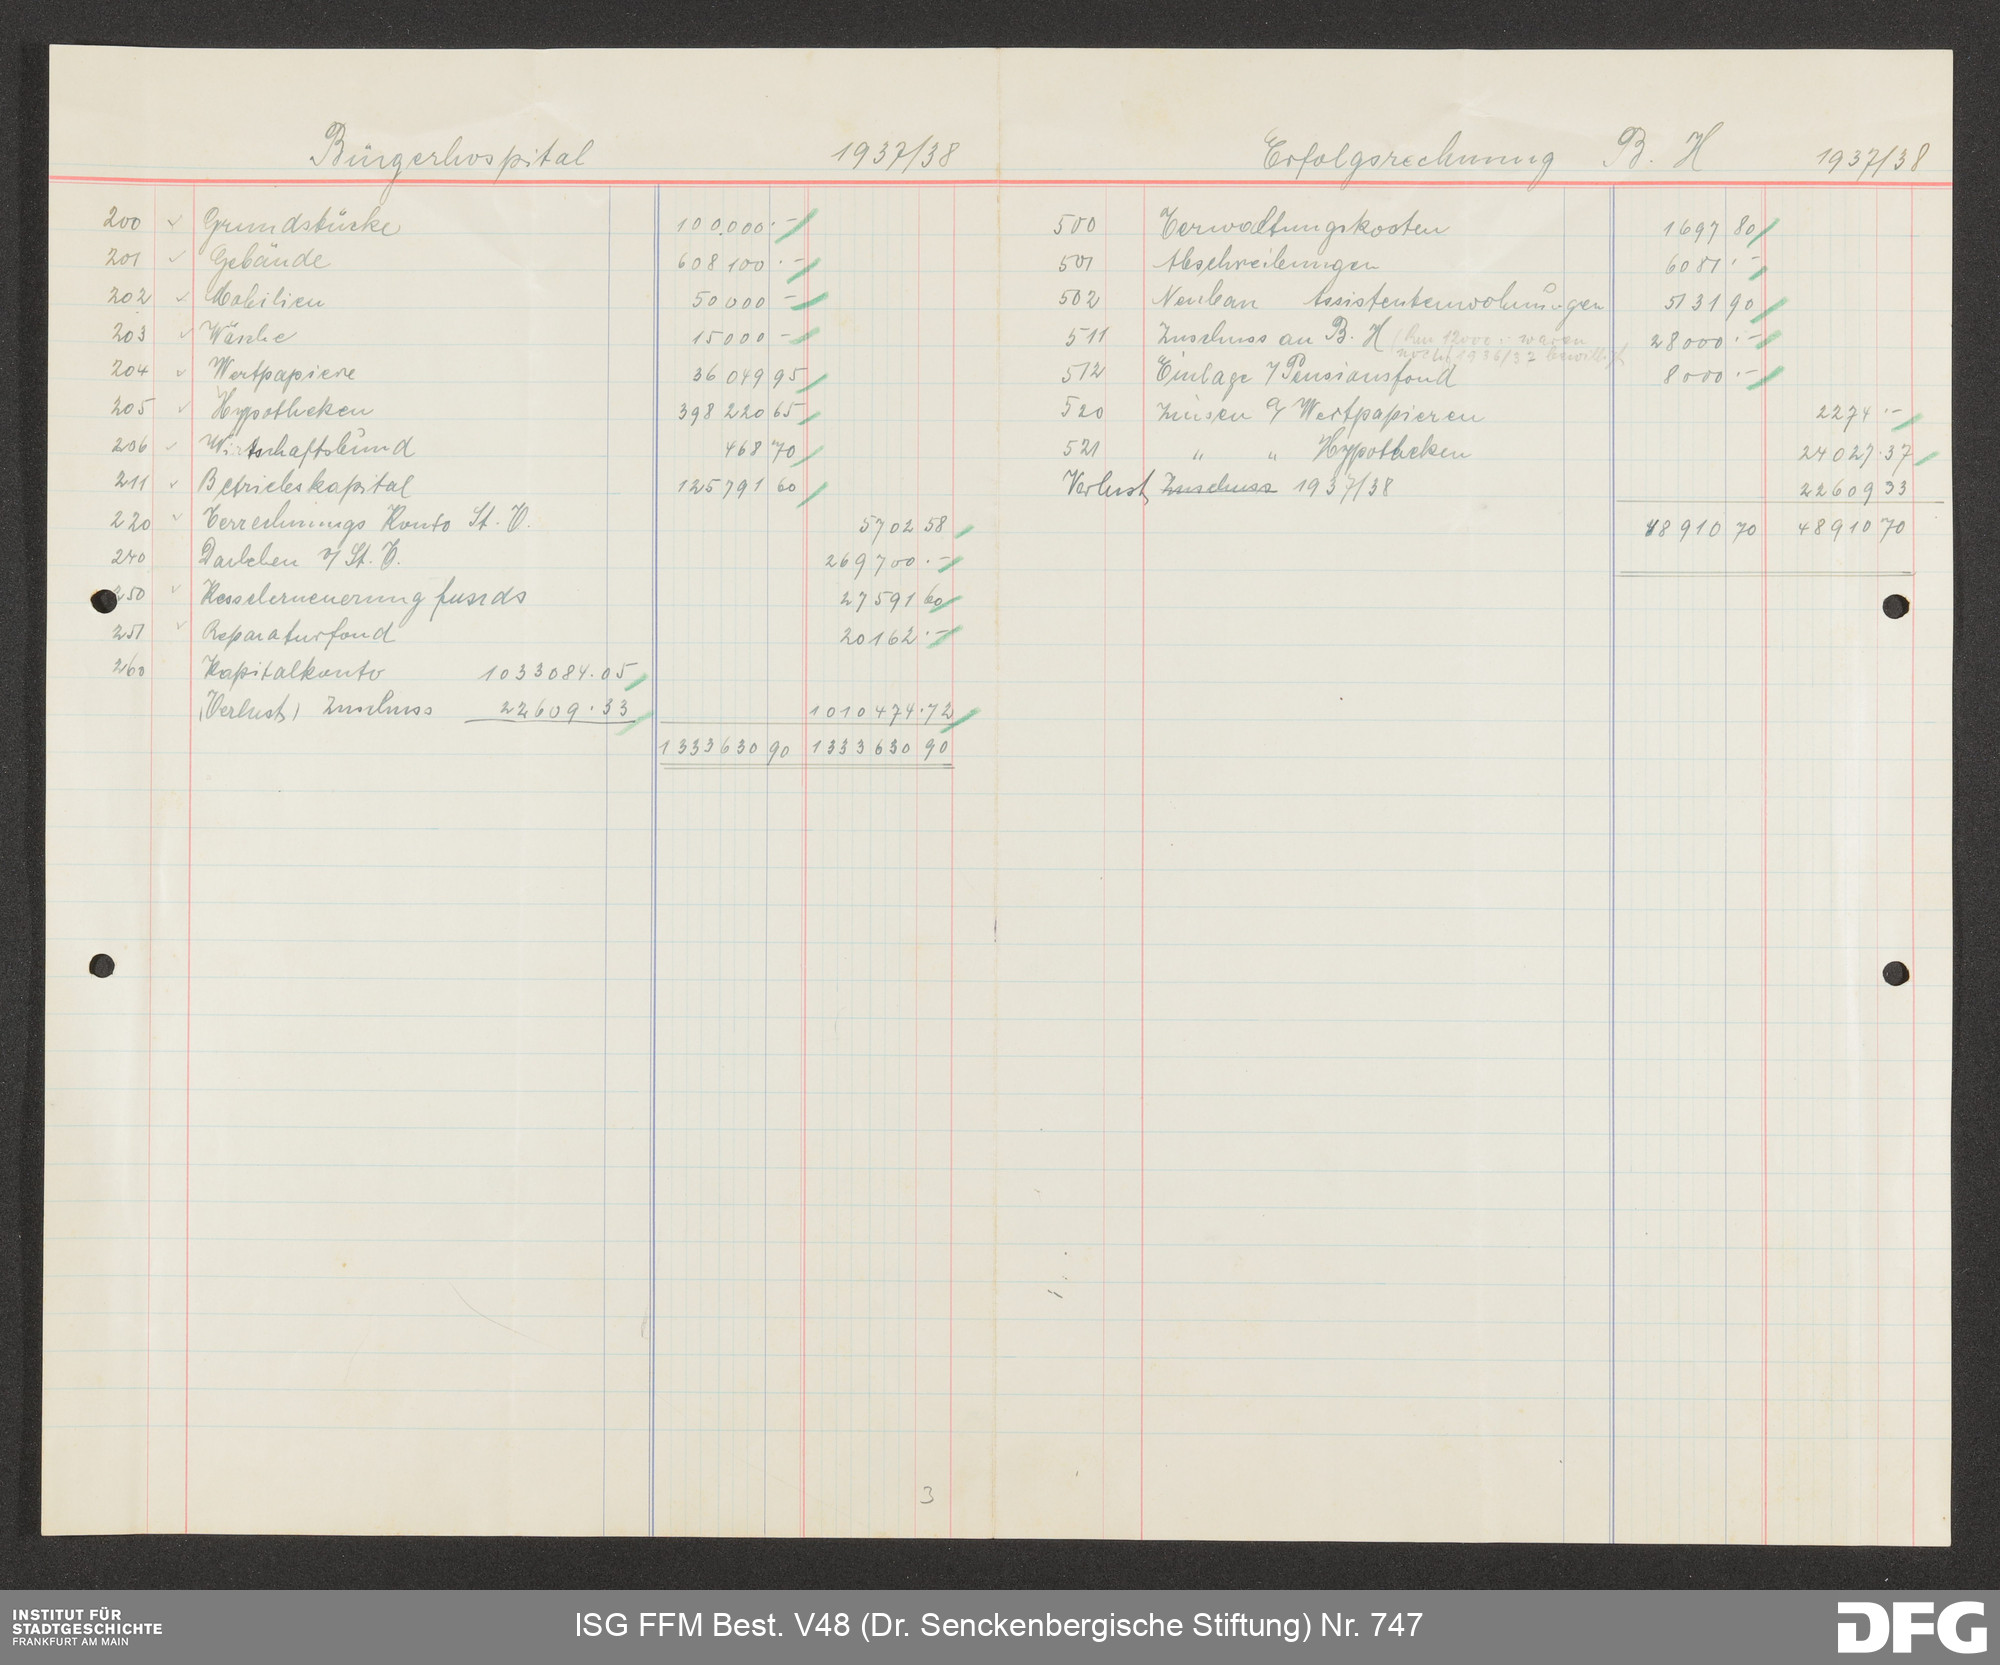 Bürgerhospital 1937/38
200 ✓ Grundstücke 100.000.–
201 ✓ Gebäude 608100.–
202 ✓ Mobilien 50000 –
203 ✓ Wäsche 15000 –
204 ✓ Wertpapiere 36049 95
205 ✓ Hypotheken 398220 65
206 ✓ Wirtschaftsbund 468 70
211 ✓ Betriebskapital 125791 60
220 ✓ Verrechnungs Konto St. V. 5702 58
240 Darlehen v/ St. V. 269700.–
250 ✓ Kesselerneuerungfusids 27591 60
251 ✓ Reparaturfond 20162.–
260 Kapitalkonto 1033084.05
(Verlust) Zuschuss 22609.33 1010474.72
1333630 90 1333630 90
3
Erfolgsrechnung B. H 1937/38
500 Verwaltungskosten 1697 80
501 Abschreibungen 6081.–
502 Neubau Assistentenwohnungen 5131 90
511 Zuschuss an B. H (Rm 12000.– waren 28000.–
noch 1936/37 bewilligt)
512 Einlage i/ Pensionsfond 8000.–
520 Zinsen a/ Wertpapieren 2274.–
521 " " Hypotheken 24027.37
Verlust Zuschuss 1937/38 22609 33
48910 70 48910 70
INSTITUT FÜR
STADTGESCHICHTE
FRANKFURT AM MAIN
ISG FFM Best. V48 (Dr. Senckenbergische Stiftung) Nr. 747
DFG